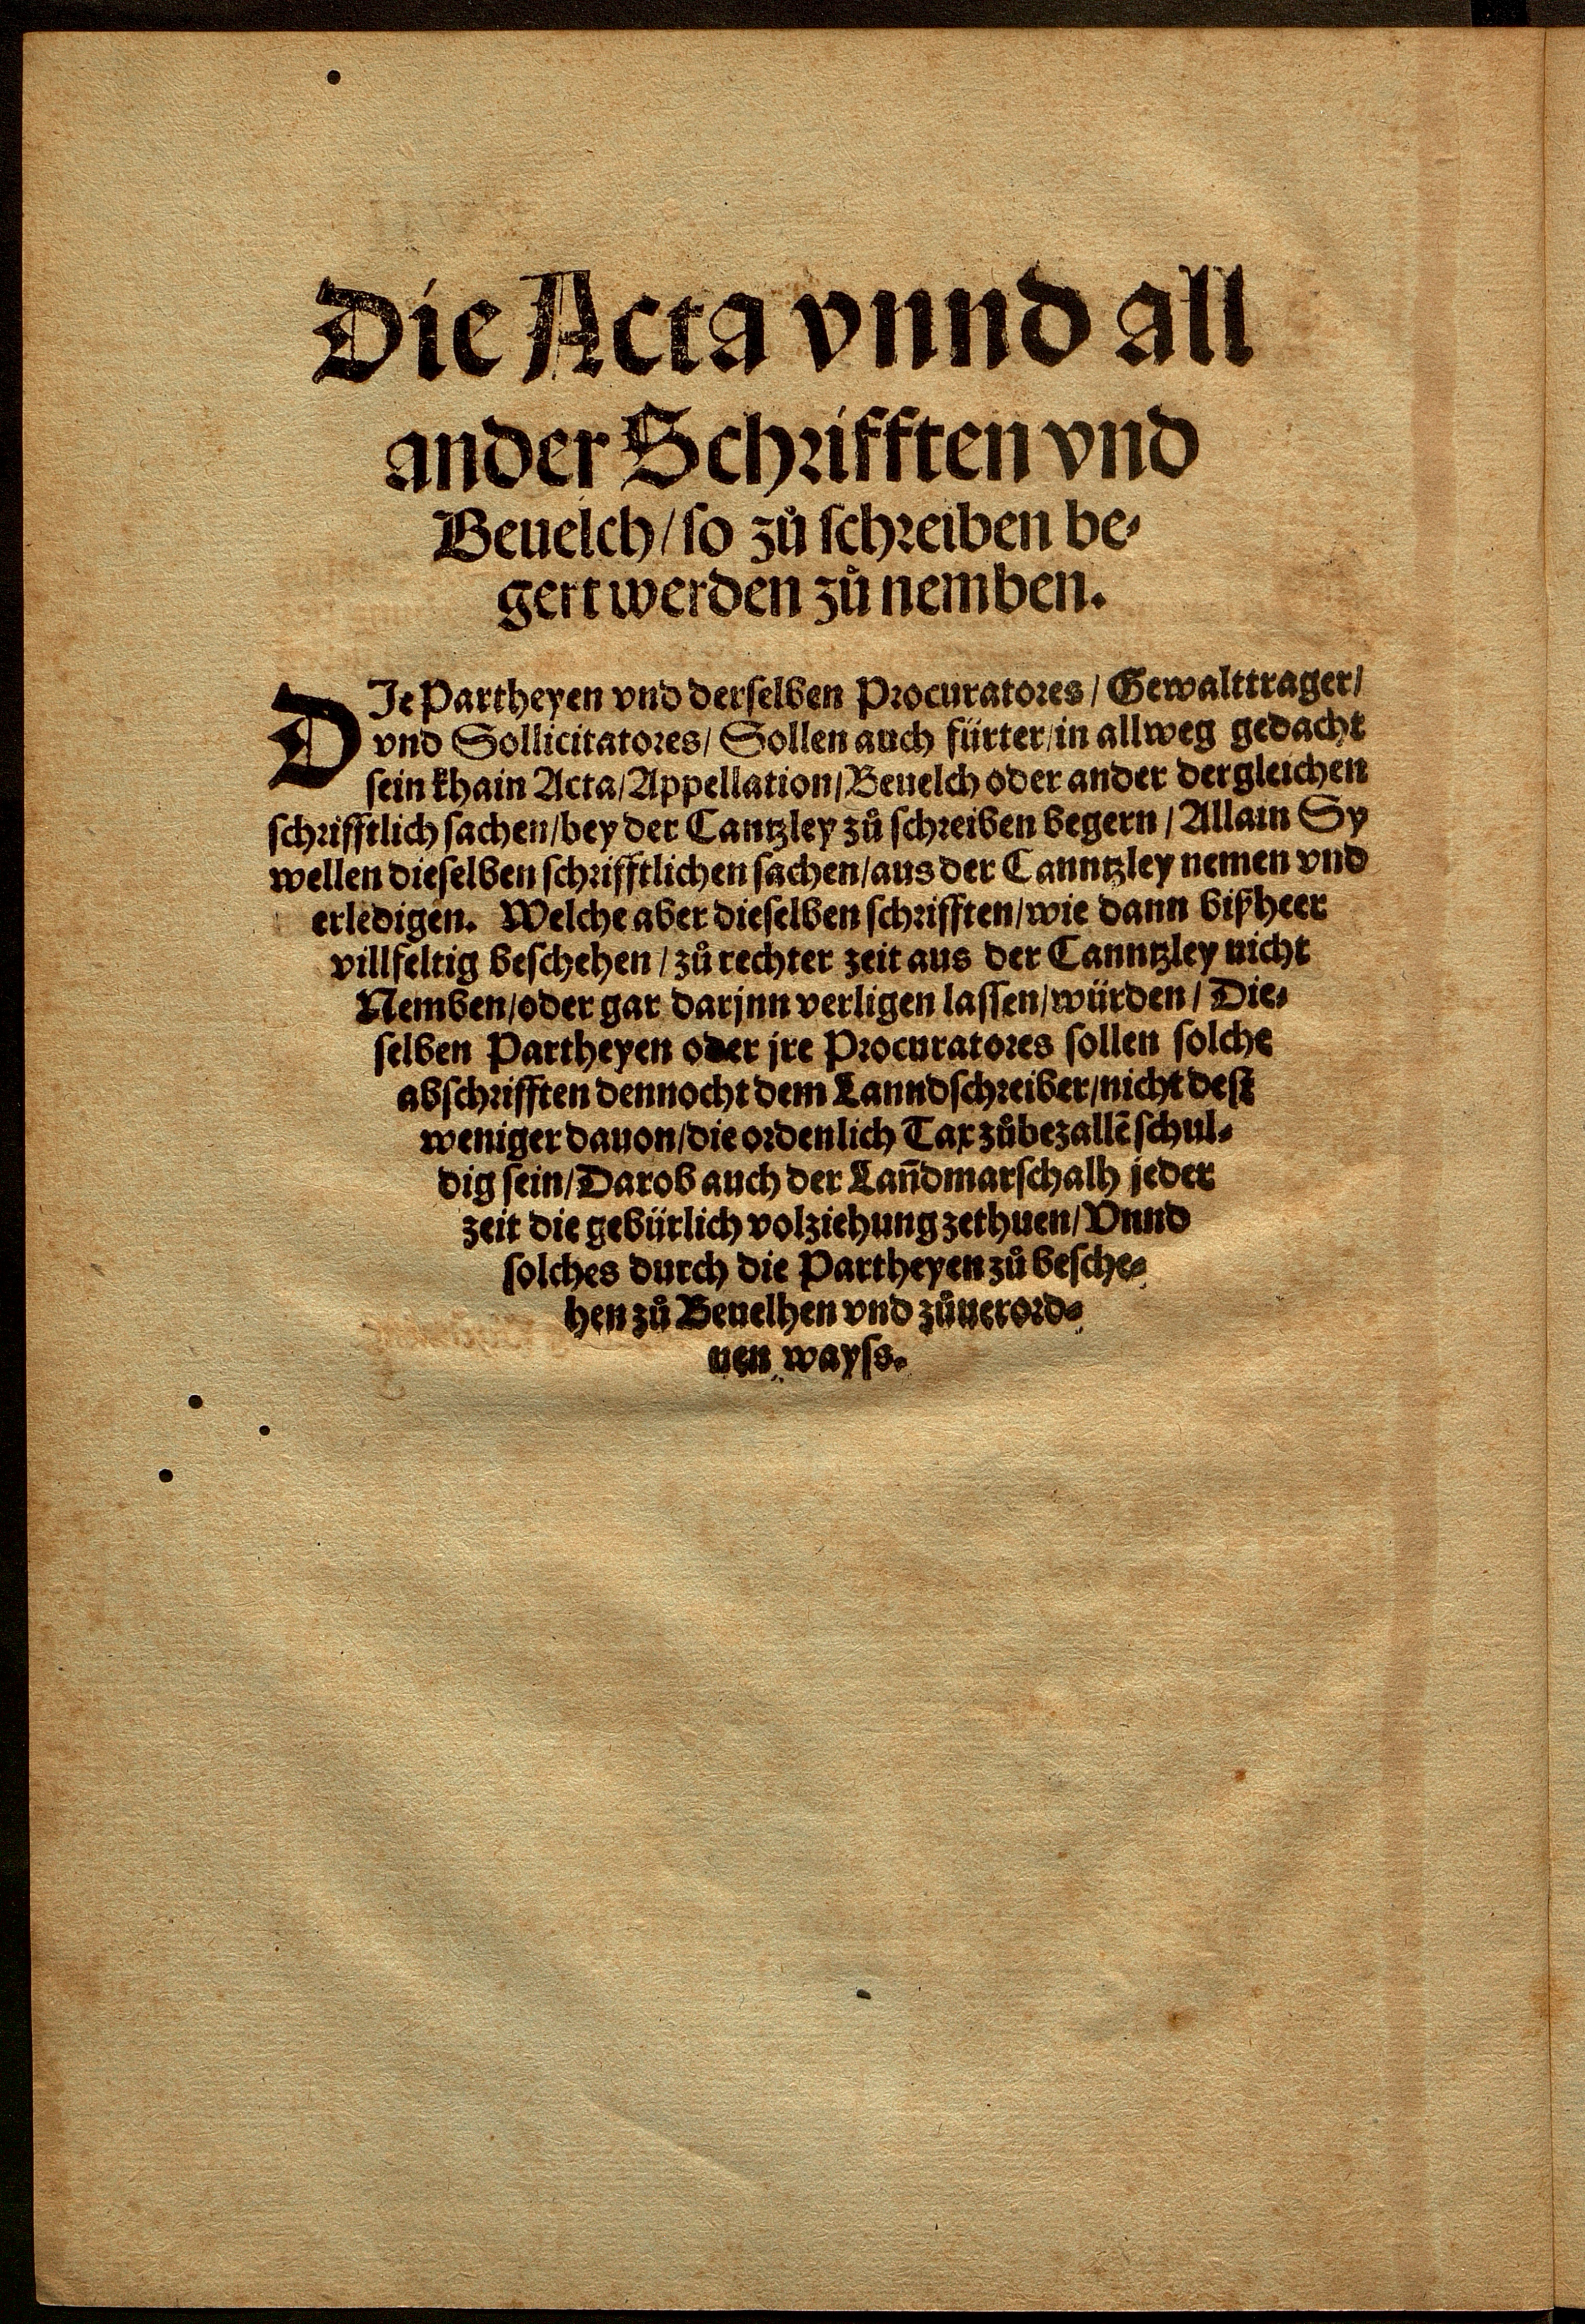 Die Acta vnnd all
ander Schrifften vnd
Beuelch / so zů schreiben be⸗
gert werden zů nemben.
DJe Partheyen vnd derselben Procuratores / Gewalttrager /
vnd Sollicitatores / Sollen auch fürter / in allweg gedacht
sein khain Acta / Appellation / Beuelch oder ander dergleichen
schrifftlich sachen / bey der Cantzley zů schreiben begern / Allain Sy
wellen dieselben schrifftlichen sachen / aus der Canntzley nemen vnd
erledigen. Welche aber dieselben schrifften / wie dann bißheer
villfeltig beschehen / zů rechter zeit aus der Canntzley nicht
Nemben / oder gar darjnn verligen lassen / würden / Die⸗
selben Partheyen oder jre Procuratores sollen solche
abschrifften dennocht dem Lanndschreiber / nicht dest
weniger dauon / die ordenlich Tax zůbezallē schul⸗
dig sein / Darob auch der Lan̄dmarschalh jeder
zeit die gebürlich volziehung zethuen / Vnnd
solches durch die Partheyen zů besche⸗
hen zů Beuelhen vnd zůuerord⸗
nen wayss.